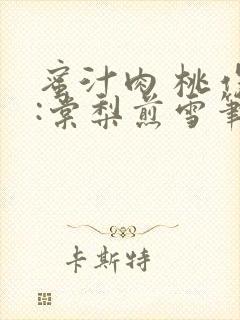 蜜汁肉桃作
:棠梨煎雪筆
卡斯特